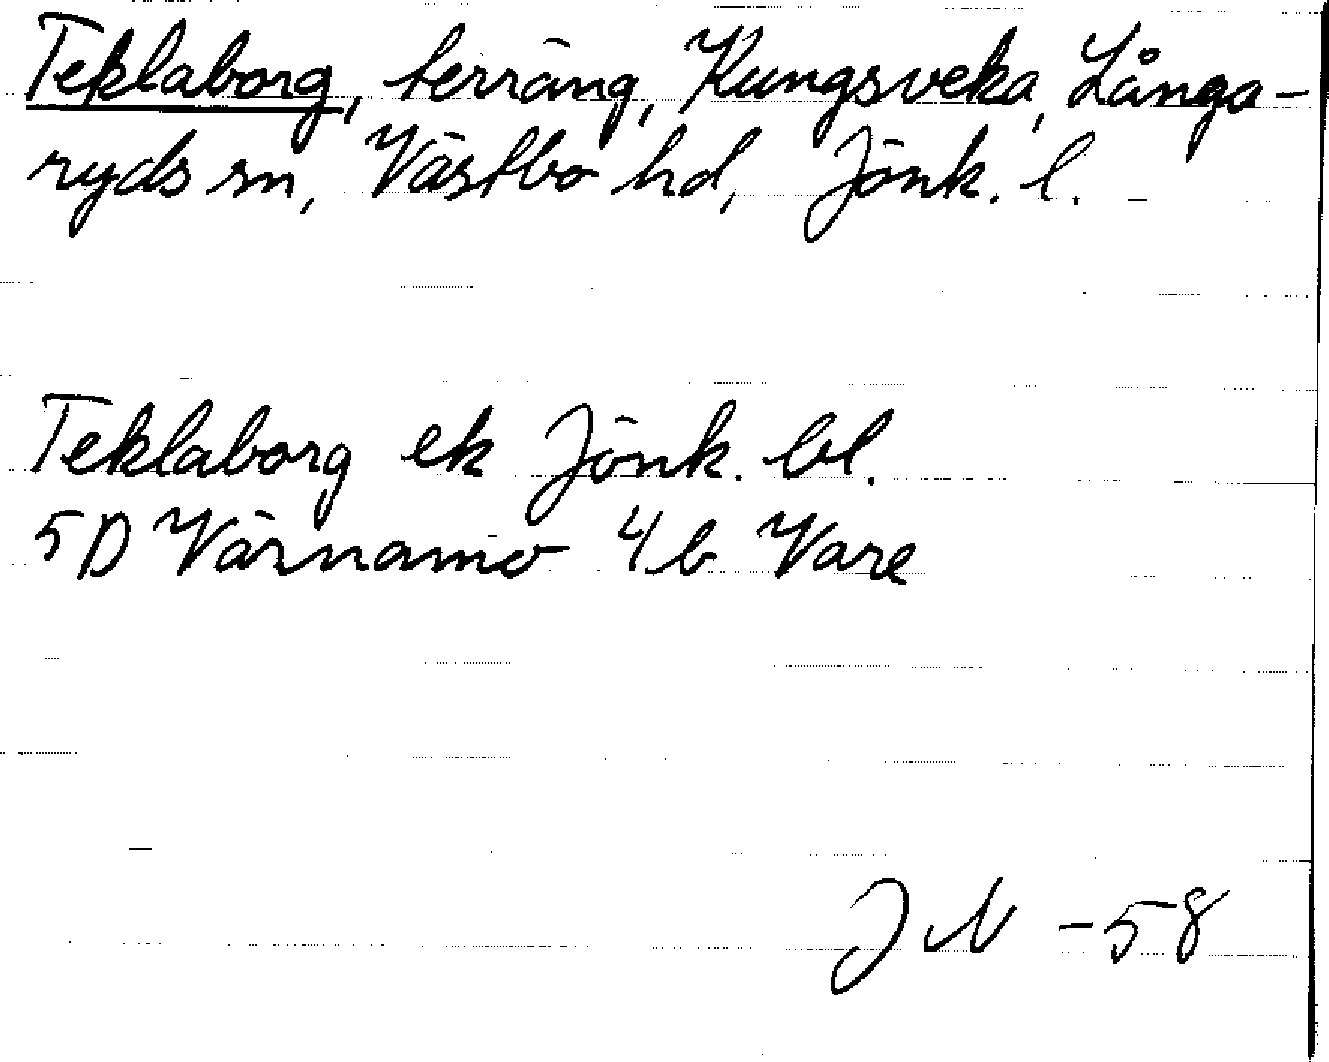 Teklaborg, terräng, Kungsveka, Långa-
ryds sn, Västbo hd, Jönk. l.
Teklaborg ek Jönk. bl.
5D Värnamo 4b Vare
JN -58